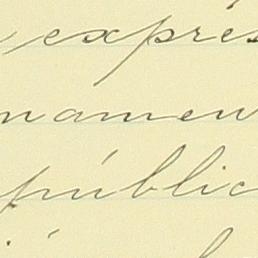 expres
namen
públic